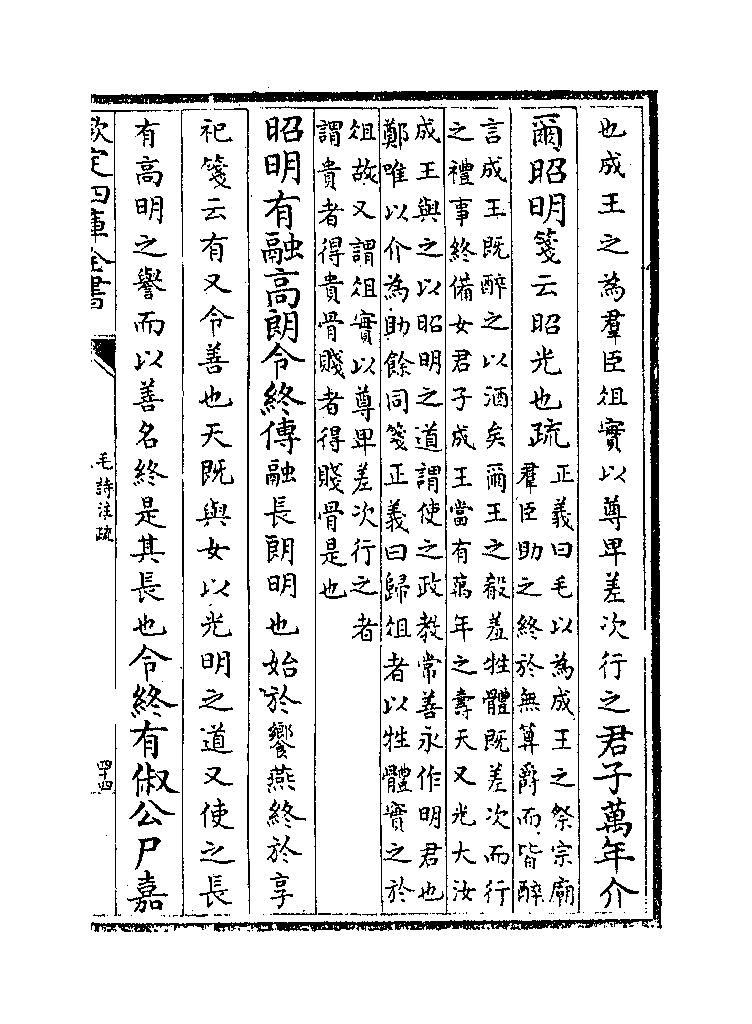 也成王之為羣臣俎實以尊卑差次行之君子萬年介
爾昭明箋云昭光也疏
正義曰毛以為成王之祭宗廟
羣臣助之終於無算爵而皆醉
言成王既醉之以酒矣爾王之殽羞牲體既差次而行
之禮事終備女君子成王當有萬年之壽天又光大汝
成王與之以昭明之道謂使之政教常善永作明君也
鄭唯以介為助餘同箋正義曰歸俎者以牲體實之於
俎故又謂俎實以尊卑差次行之者
謂貴者得貴骨賤者得賤骨是也
昭明有融高朗令終傳融長朗明也始於饗燕終於享
祀箋云有又令善也天既與女以光明之道又使之長
有高明之譽而以善名終是其長也令終有俶公尸嘉
欽定四庫全書
毛詩注疏
四十四